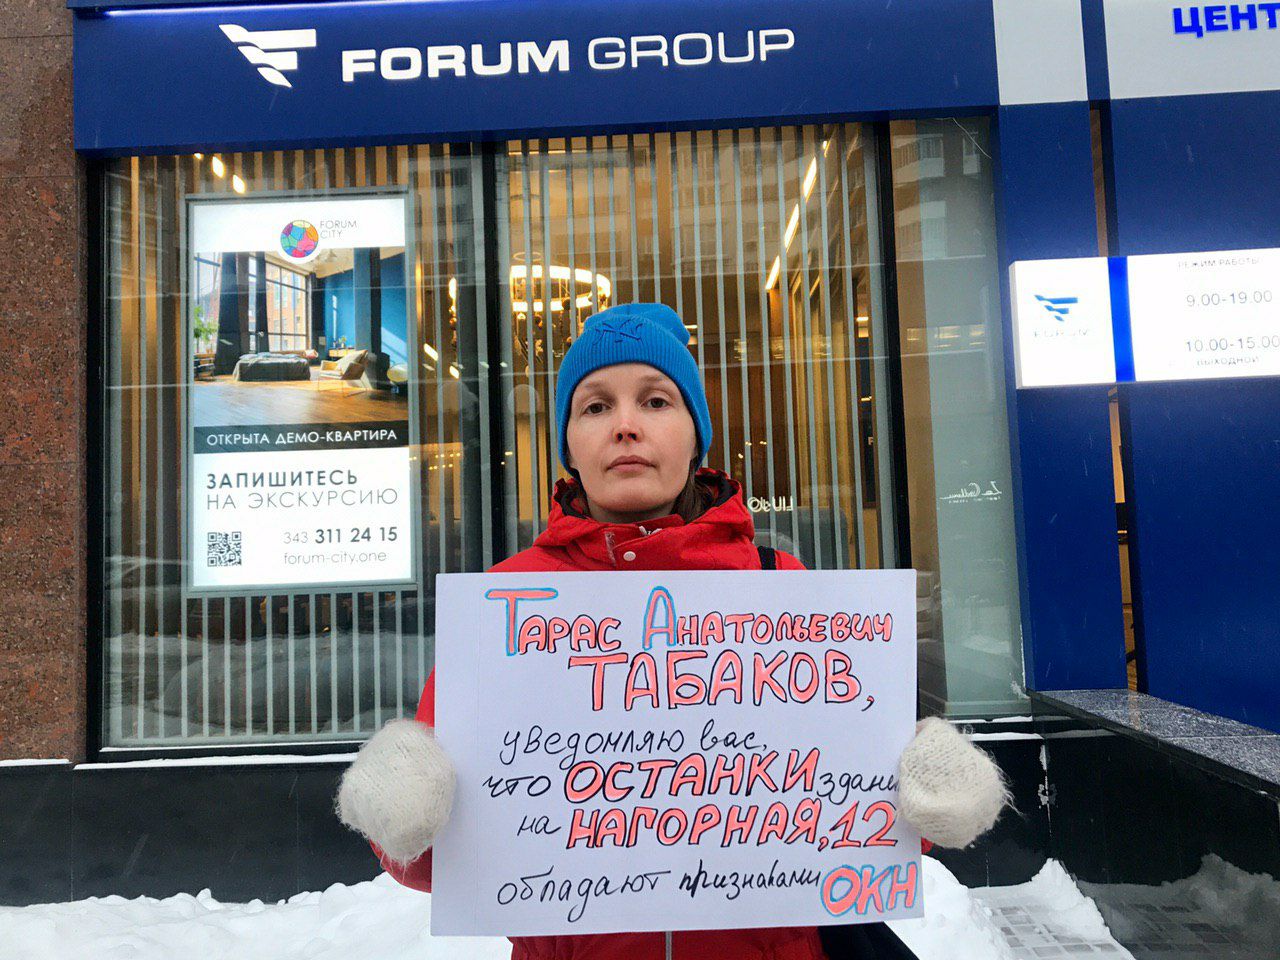 FORUM GROUP
ЦЕНТ
FORUM
CITY
ОТКРЫТА ДЕМО-КВАРТИРА
ЗАПИШИТЕСЬ
НА ЭКСКУРСИЮ
343 311 24 15
forum-city.one
РЕЖИМ РАБОТЫ
9.00-19.00
10.00-15.00
ВЫХОДНОЙ
FORUM
NY
Тарас Анатольевич
ТАБАКОВ,
уведомляю вас,
что ОСТАНКИ здани
на НАГОРНАЯ, 12
обладают признаками ОКН